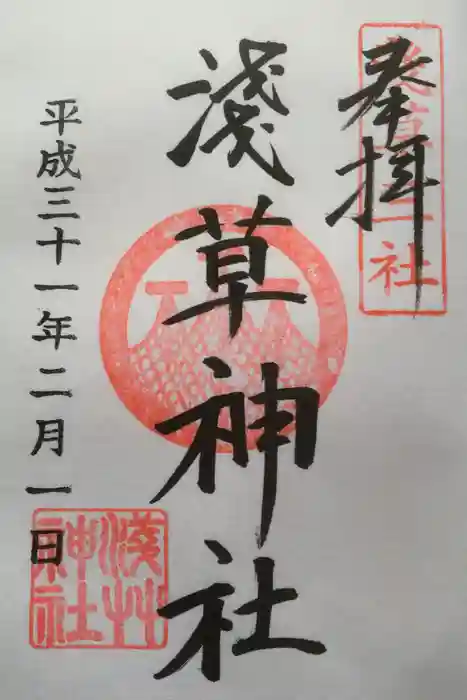 奉拝
淺草神社
平成三十一年二月一日
淺草神社